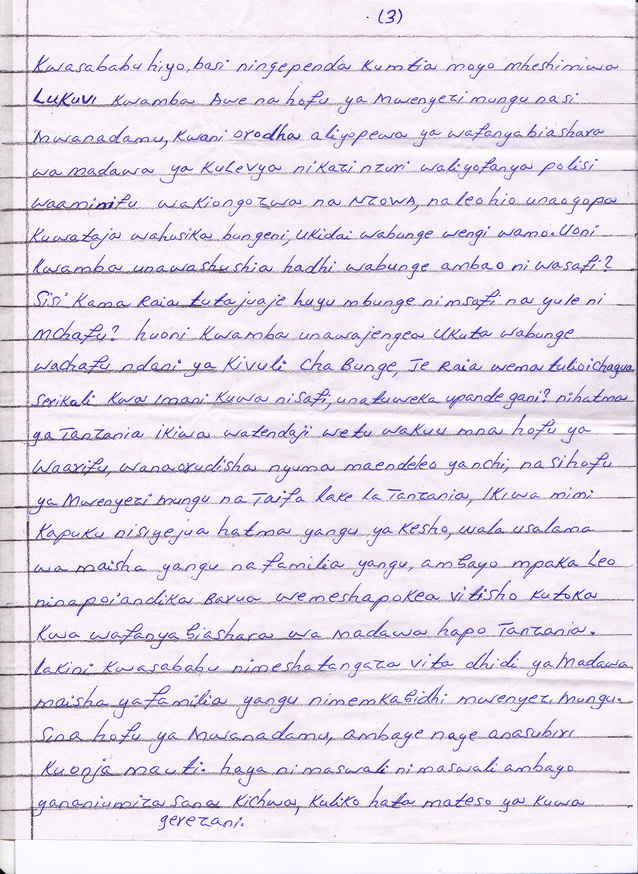 (3)
Kwasababu hiyo, basi ningependa Kumtia moyo mheshimiwa
LUKUVI Kwamba Awe na hofu ya Mwenyezi mungu nasi
Mwanadamu, Kwani orodha aliyopewa ya wafanyabiashara
wa madawa ya Kulevya ni Kazi nzuri waliyofanya polisi
waaminifu wakiongozwa na NZOWA, na leo hio unaogopa
Kuwataja wahusika bungeni, Ukidai wabunge wengi wamo. Uoni
Kwamba unawashushia hadhi wabunge ambao ni wasafi?
Sisi Kama Raia tutajuaje huyu mbunge ni msafi na yule ni
mchafu? huoni Kwamba unawajengea UKuta wabunge
wachafu ndani ya Kivuli Cha Bunge, Je Raia wema tulioichagua
Serikali Kwa Imani Kuwa ni Safi, unatuweka upande gani? ni hatma
ya Tanzania iKiwa watendaji wetu wakuu mna hofu ya
Waarifu, wanaorudisha nyuma maendeleo ya nchi, na si hofu
ya Mwenyezi mungu na Taifa lake la Tanzania, IKiwa mimi
Kapuku nisiyejua hatma yangu ya Kesho, wala usalama
wa maisha yangu na familia yangu, ambayo mpaka Leo
ninapoiandika Barua wemeshapokea vitisho Kutoka
Kwa wafanyabiashara wa madawa hapo Tanzania.
lakini Kwasababu nimeshatangaza vita dhidi ya Madawa
maisha ya familia yangu nimemkabidhi mwenyezi Mungu.
Sina hofu ya Mwanadamu, ambaye naye anasubiri
Kuonja mauti. haya ni maswali ni maswali ambayo
yananiumiza Sana Kichwa, Kuliko hata mateso ya Kuwa
gerezani.